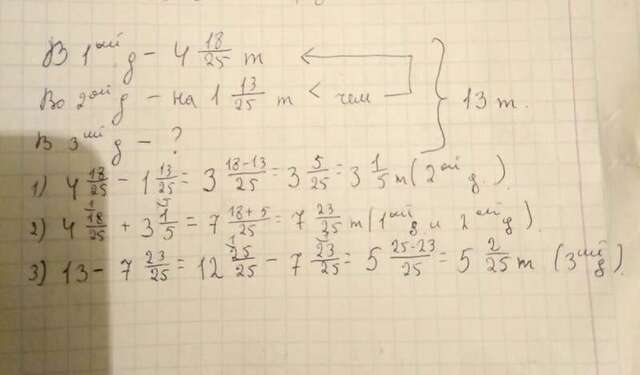 В 1ый д - 4 18/25 т
Во 2ой д - на 1 13/25 т < чем
В 3ий д - ?
13 т.
1) 4 18/25 - 1 13/25 = 3 18-13/25 = 3 5/25 = 3 1/5 т (2ой д.).
2) 4 18/25 + 3 1/5 = 7 18+5/25 = 7 23/25 т (1ый д и 2ой д).
3) 13 - 7 23/25 = 12 25/25 - 7 23/25 = 5 25-23/25 = 5 2/25 т (3ий д).